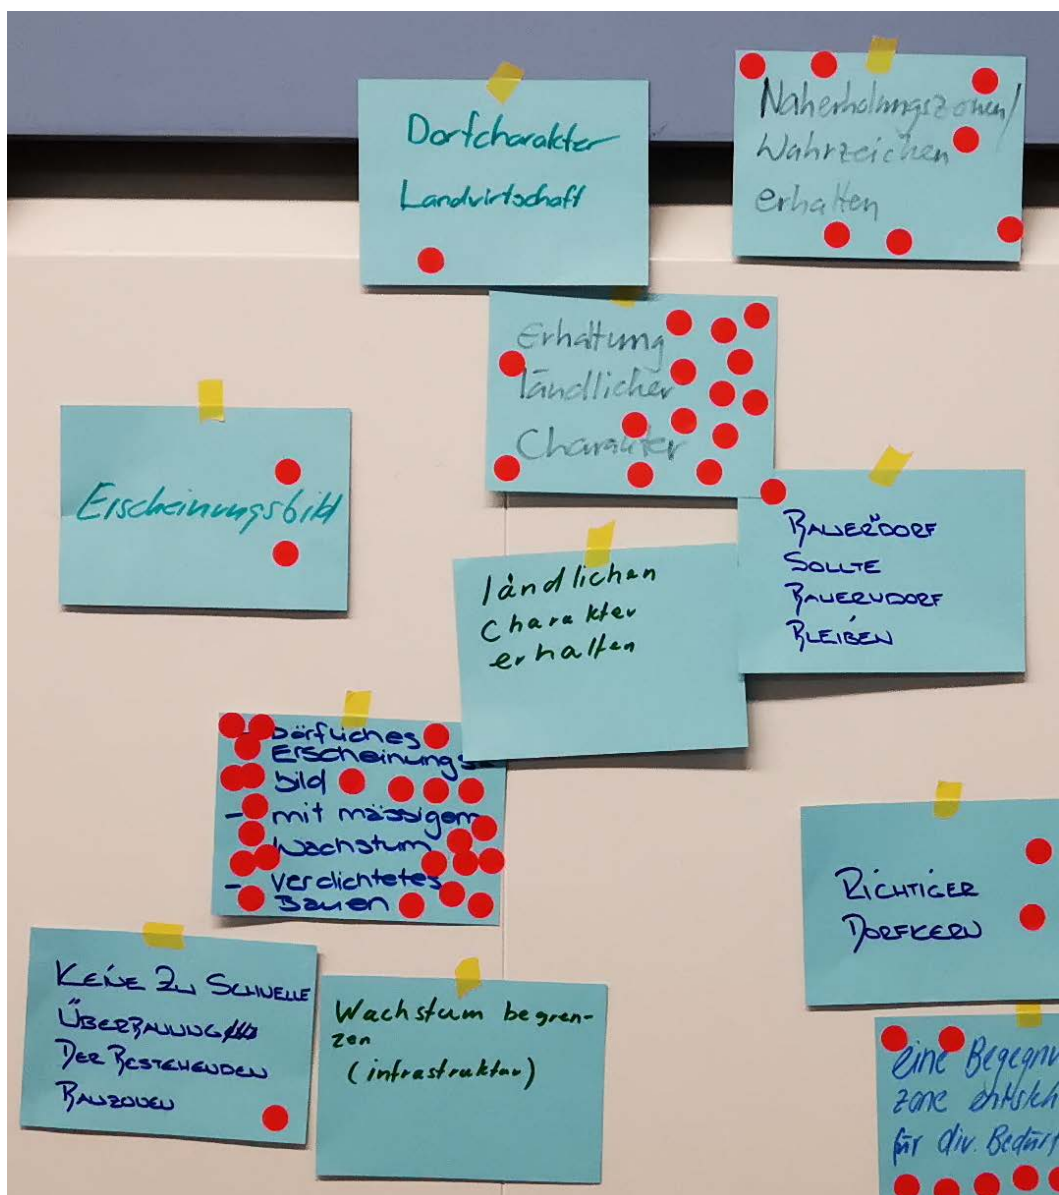 Dorfcharakter
Landwirtschaft
Naherholungszonen/
Wahrzeichen
erhalten
Erhaltung
ländlicher
Charakter
Erscheinungsbild
BAUERDORF
SOLLTE
BAUERNDORF
BLEIBEN
ländlichen
Charakter
erhalten
- Dörfliches
Erscheinungs
bild
- mit mässigem
Wachstum
- verdichtetes
Bauen
RICHTIGER
DORFKERN
KEINE ZU SCHNELLE
ÜBERBAUUNG
DER BESTEHENDEN
BAUZONEN
Wachstum begren-
zen
(infrastruktur)
eine Begegn
zone entsteh
für div. Bedürf